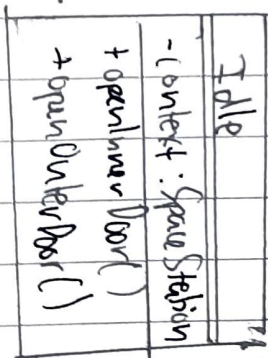 Idle
-context : SpaceStation
+openInnerDoor()
+openOuterDoor()